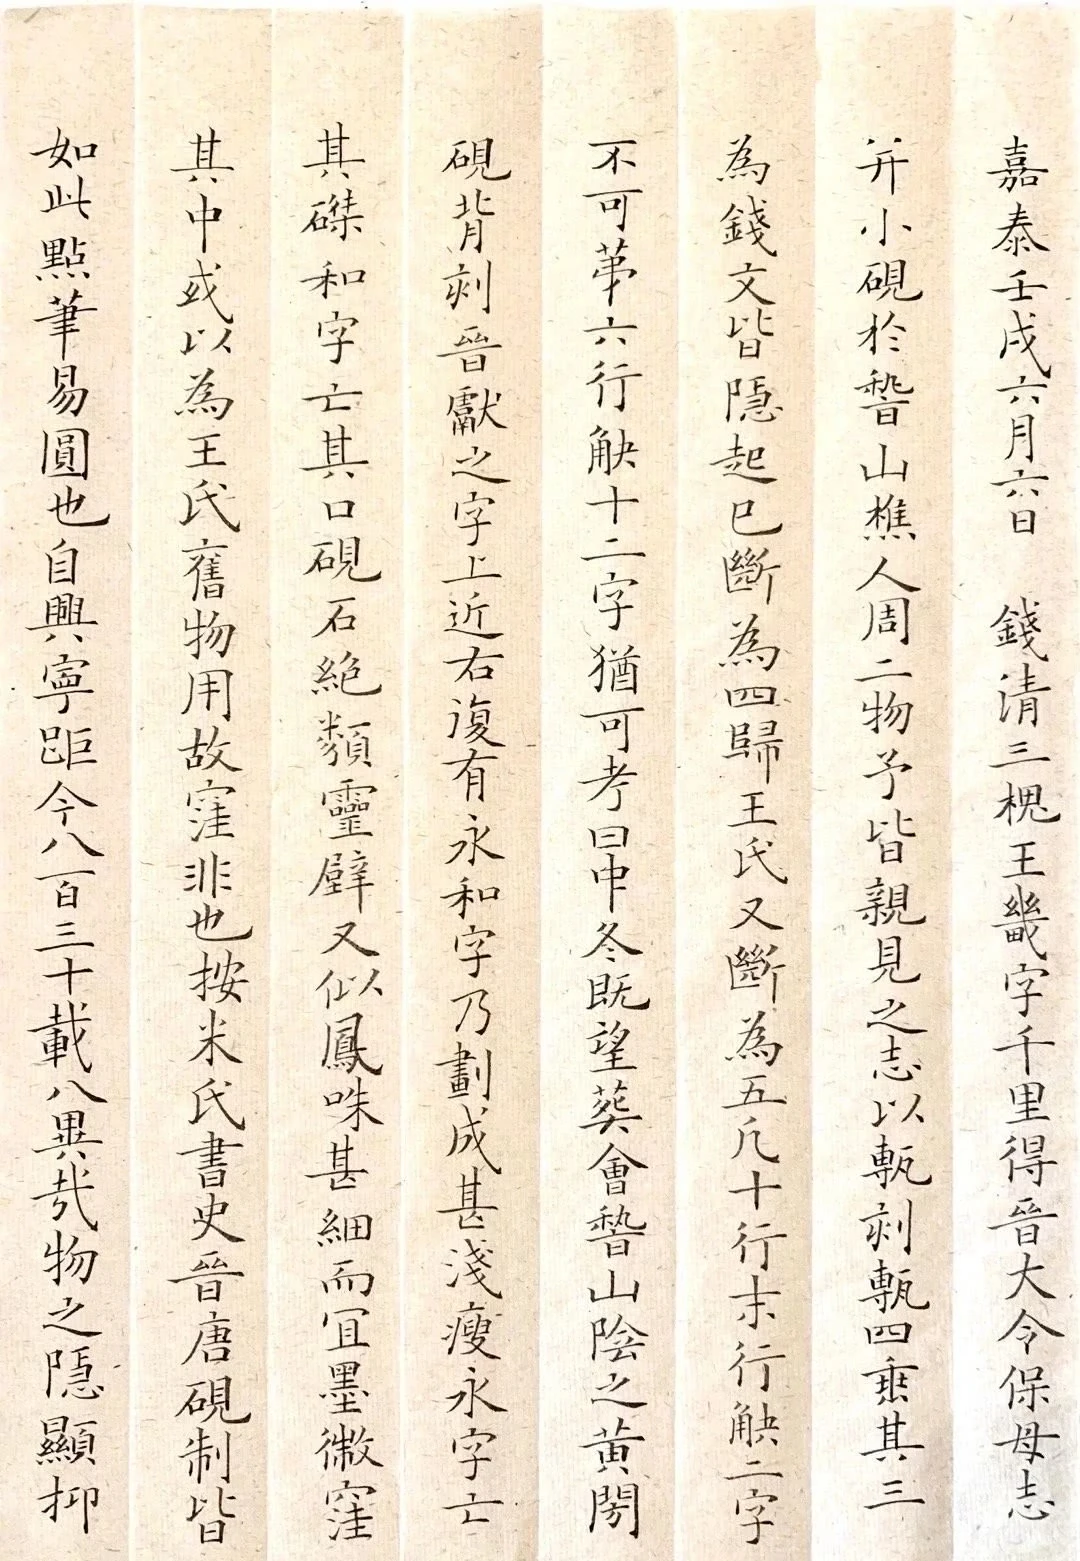 嘉泰壬戌六月六日 錢清三槐王畿字千里得晉大令保母志
并小硯於稽山樵人周二物予皆親見之志以甎刻甎四垂其三
為錢文皆隱起已斷為四歸王氏又斷為五凡十行末行觖二字
不可苐六行觖十二字猶可考曰中冬既望葬會稽山陰之黃閍
硯背刻晉獻之字上近右復有永和字乃劃成甚淺瘦永字亡
其磔和字亡其口硯石絕類靈璧又似鳳咮甚細而宜墨微窪
其中或以為王氏舊物用故窪非也按米氏書史晉唐硯制皆
如此點筆易圓也自興寧距今八百三十載八異哉物之隱顯抑